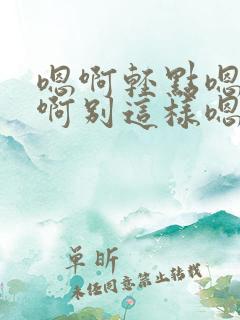 嗯啊輕點嗯
啊別這樣嗯
單昕
未经同意禁止转载